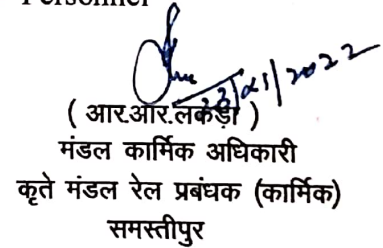 Personnel
28/01/2022
( आर.आर.लकड़ा )
मंडल कार्मिक अधिकारी
कृते मंडल रेल प्रबंधक (कार्मिक)
समस्तीपुर